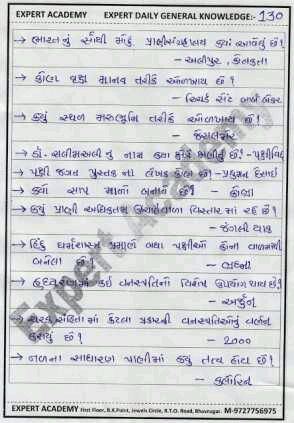 EXPERT ACADEMY EXPERT DAILY GENERAL KNOWLEDGE:- 130
→ ભારતનું સૌથી મોટું પ્રાણીસંગ્રહાલય ક્યાં આવેલું છે?
– અલીપુર, કોલકતા
→ કોણ વૃક્ષ માનવ તરીકે ઓળખાય છે?
– રિચાર્ડ સેંટ બાર્બ બેકર
→ કયું સ્થળ મરુભૂમિ તરીકે ઓળખાય છે?
– જેસલમેર
→ ડૉ. સલીમઅલી નું નામ કયા ક્ષેત્રે જાણીતું છે? – પક્ષીવિદ્
→ પક્ષી જગત પુસ્તક ના લેખક કોણ છે? – પ્રદ્યુમન દેસાઈ
→ કયો સાપ માળો બનાવે છે? – કોબ્રા
→ કયું પ્રાણી અધિકતમ વિસ્તાર માં રહે છે?
– જંગલી યાક
→ હિંદુ ધર્મશાસ્ત્ર પ્રમાણે બધા પક્ષીઓ કોના વાળમાંથી
બનેલા છે? – બ્રહ્મના
→ હૃદયરોગમાં કઈ વનસ્પતિનો વિશેષ ઉપયોગ થાય છે?
– અર્જુન
→ ચરક સંહિતા માં કેટલા પ્રકારની વનસ્પતિઓનું વર્ણન
કરાયું છે? – 2000
→ નળના સાધારણ પાણીમાં કયું તત્વ હોય છે?
– ક્લોરિન
EXPERT ACADEMY First Floor, B.K.Point, Jewels Circle, R.T.O. Road, Bhavnagar. M-9727756975
Expert Academy